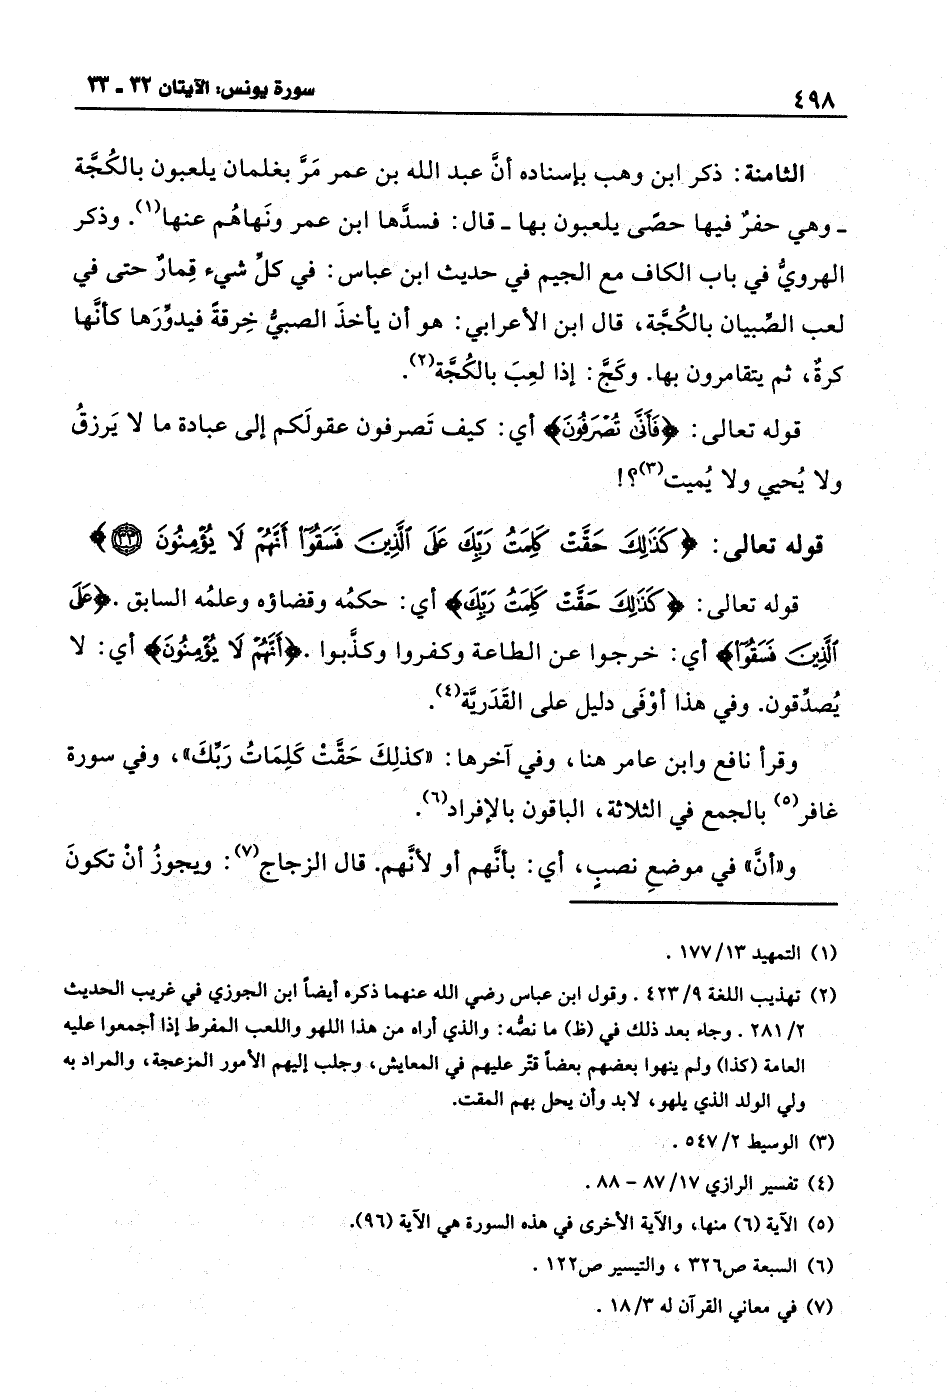 ٤٩٨
سورة يونس: الآيتان ٣٢ ـ ٣٣
الثامنة: ذكر ابن وهب بإسناده أنَّ عبد الله بن عمر مَرَّ بغلمان يلعبون بالكُجَّة
ـ وهي حفرٌ فيها حصًى يلعبون بها ـ قال: فسدَّها ابن عمر ونَهاهُم عنها(١). وذكر
الهرويُّ في باب الكاف مع الجيم في حديث ابن عباس: في كلِّ شيء قِمارٌ حتى في
لعب الصِّبيان بالكُجَّة، قال ابن الأعرابي: هو أن يأخذَ الصبيُّ خِرقةً فيدوِّرَها كأنَّها
كرةٌ، ثم يتقامرون بها. وكَجَّ: إذا لعِبَ بالكُجَّة(٢).
قوله تعالى: ﴿فَأَنَّىٰ تُصْرَفُونَ﴾ أي: كيف تَصرفون عقولَكم إلى عبادة ما لا يَرزقُ
ولا يُحيي ولا يُميت(٣)؟!
قوله تعالى: ﴿كَذَٰلِكَ حَقَّتْ كَلِمَتُ رَبِّكَ عَلَى ٱلَّذِينَ فَسَقُوٓا۟ أَنَّهُمْ لَا يُؤْمِنُونَ ٣٣﴾
قوله تعالى: ﴿كَذَٰلِكَ حَقَّتْ كَلِمَتُ رَبِّكَ﴾ أي: حكمُه وقضاؤه وعلمُه السابق. ﴿عَلَى
ٱلَّذِينَ فَسَقُوٓا۟﴾ أي: خرجوا عن الطاعة وكفروا وكذَّبوا. ﴿أَنَّهُمْ لَا يُؤْمِنُونَ﴾ أي: لا
يُصدِّقون. وفي هذا أوْفَى دليل على القَدَريَّة(٤).
وقرأ نافع وابن عامر هنا، وفي آخرها: «كذلِكَ حَقَّتْ كَلِمَاتُ رَبِّكَ»، وفي سورة
غافر(٥) بالجمع في الثلاثة، الباقون بالإفراد(٦).
و«أنَّ» في موضعِ نصبٍ، أي: بأنَّهم أو لأنَّهم. قال الزجاج(٧): ويجوزُ أنْ تكونَ
(١) التمهيد ١٧٧/١٣ .
(٢) تهذيب اللغة ٤٢٣/٩ . وقول ابن عباس رضي الله عنهما ذكره أيضاً ابن الجوزي في غريب الحديث
٢٨١/٢ . وجاء بعد ذلك في (ظ) ما نصُّه: والذي أراه من هذا اللهو واللعب المفرط إذا أجمعوا عليه
العامة (كذا) ولم ينهوا بعضهم بعضاً قتّر عليهم في المعايش، وجلب إليهم الأمور المزعجة، والمراد به
ولي الولد الذي يلهو، لابد وأن يحل بهم المقت.
(٣) الوسيط ٥٤٧/٢ .
(٤) تفسير الرازي ٨٧/١٧ – ٨٨ .
(٥) الآية (٦) منها، والآية الأخرى في هذه السورة هي الآية (٩٦).
(٦) السبعة ص٣٢٦ ، والتيسير ص١٢٢ .
(٧) في معاني القرآن له ١٨/٣ .